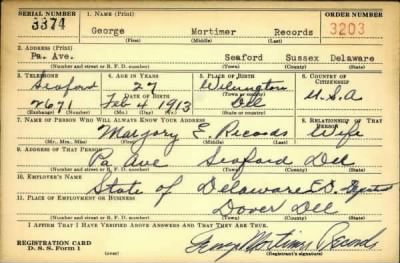 SERIAL NUMBER 1. NAME (Print) ORDER NUMBER
3374 George Mortimer Records 3203
(First) (Middle) (Last)
2. ADDRESS (Print)
Pa. Ave. Seaford Sussex Delaware
(Number and street or R. F. D. number) (Town) (County) (State)
3. TELEPHONE 4. AGE IN YEARS 5. PLACE OF BIRTH 6. COUNTRY OF CITIZENSHIP
Seaford 27 Wilmington
DATE OF BIRTH
2671 Feb 4 1913 Del U.S.A
(Exchange) (Number) (Mo.) (Day) (Yr.) (State or country)
7. NAME OF PERSON WHO WILL ALWAYS KNOW YOUR ADDRESS 8. RELATIONSHIP OF THAT PERSON
Marjory E. Records Wife
(Mr., Mrs., Miss) (First) (Middle) (Last)
9. ADDRESS OF THAT PERSON
Pa Ave Seaford Del
(Number and street or R. F. D. number) (Town) (County) (State)
10. EMPLOYER'S NAME
State of Delaware
11. PLACE OF EMPLOYMENT OR BUSINESS
Dover Del
(Number and street or R. F. D. number) (Town) (County) (State)
I AFFIRM THAT I HAVE VERIFIED ABOVE ANSWERS AND THAT THEY ARE TRUE.
REGISTRATION CARD George Mortimer Records
D. S. S. Form 1 (Registrant's signature)